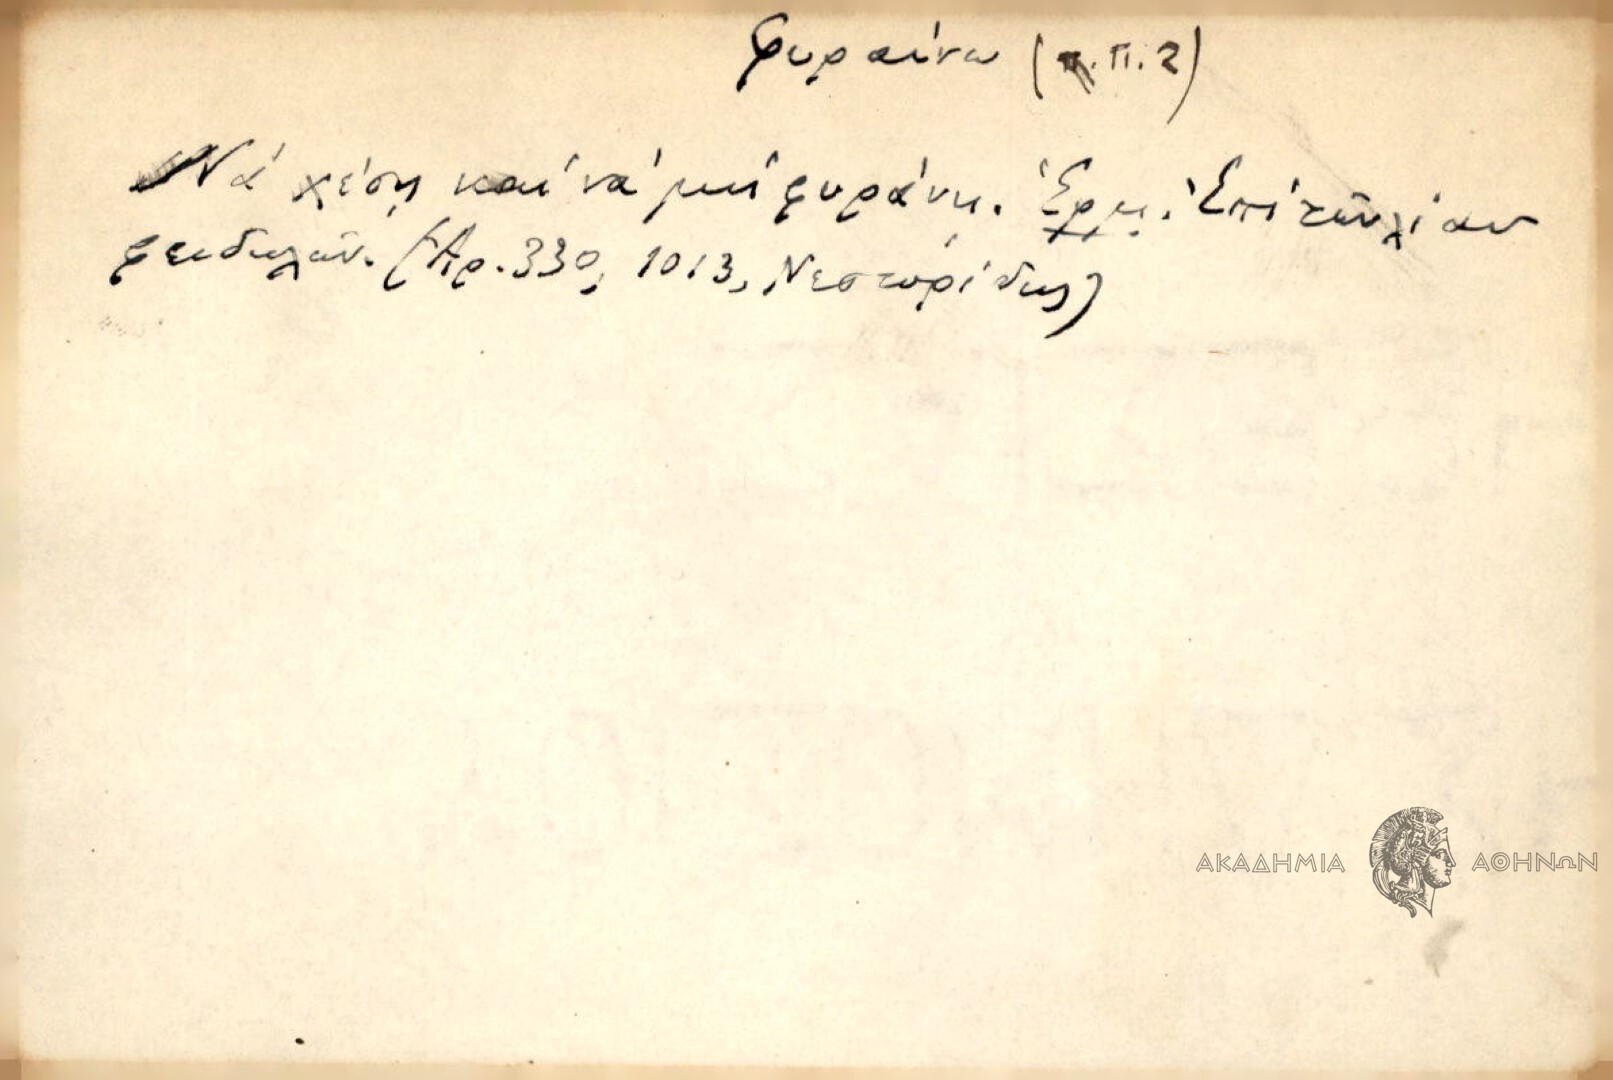 φυραίνω (π.π.2)
Νά χέσῃ καί νά μή φυράνῃ. Ἑρμ. Ἐπί τῶν λίαν
φειδωλῶν. (Ἀρ. 330, 1013, Νεστορίδης)
ΑΚΑΔΗΜΙΑ ΑΘΗΝΩΝ